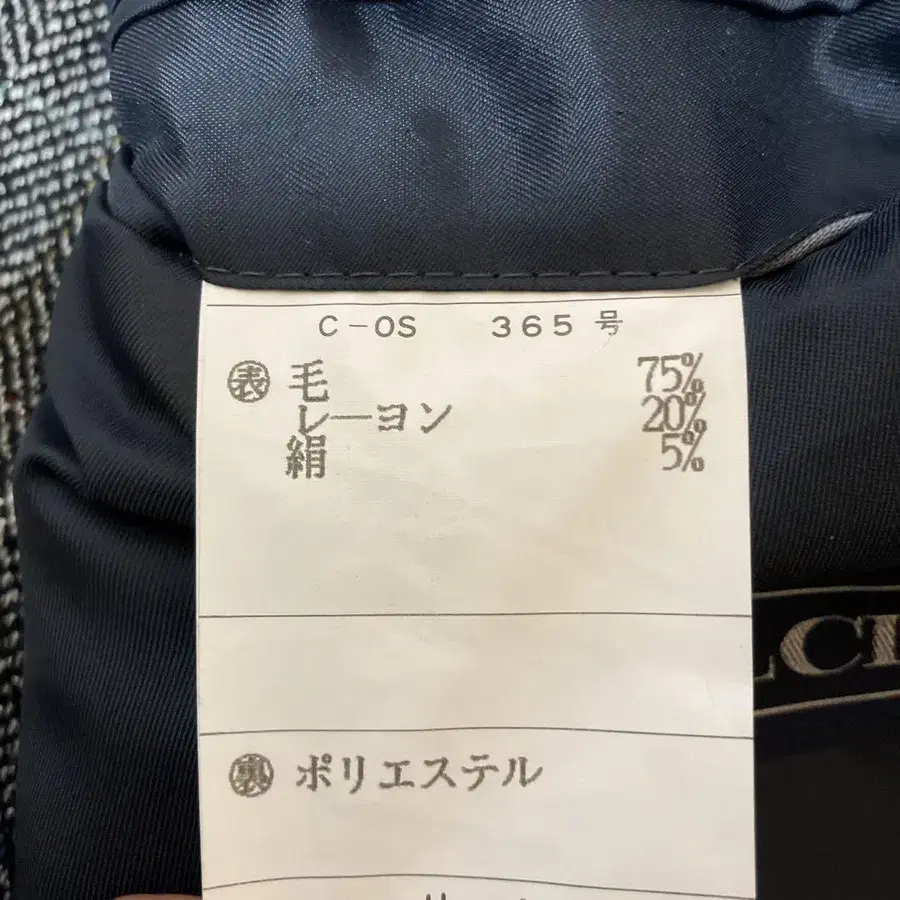 C-OS 365号
表 毛 75%
レーヨン 20%
絹 5%
裏 ポリエステル